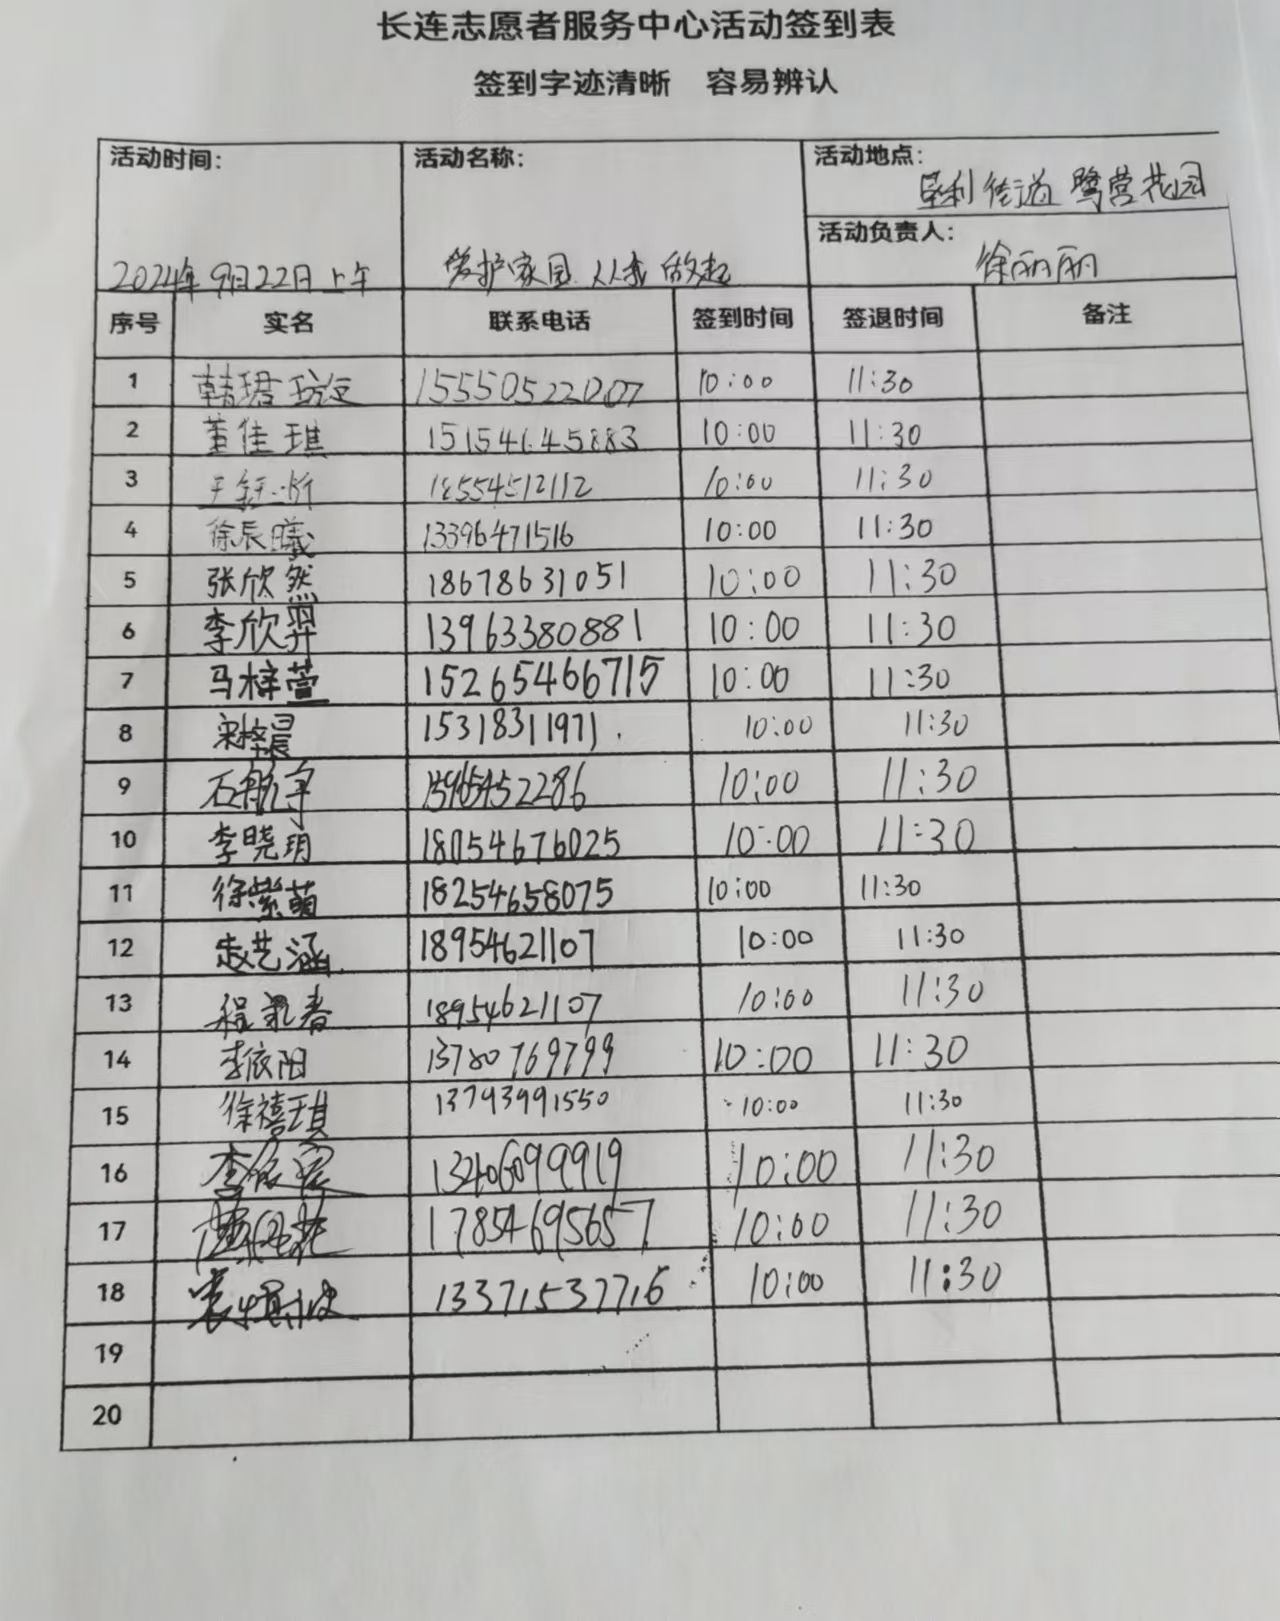 长连志愿者服务中心活动签到表
签到字迹清晰 容易辨认
活动时间: 活动名称: 活动地点:
垦利街道 鹭营花园
活动负责人:
2024年9月22日上午 爱护家园 从我做起 徐丽丽
序号 实名 联系电话 签到时间 签退时间 备注
1 韩珺 15550522007 10:00 11:30
2 董佳琪 15154645883 10:00 11:30
3 18554512112 10:00 11:30
4 徐辰曦 13396471516 10:00 11:30
5 张欣然 18678631051 10:00 11:30
6 李欣羿 13963380881 10:00 11:30
7 马梓萱 15265466715 10:00 11:30
8 宋梓晨 15318311971. 10:00 11:30
9 石航宇 15965452286 10:00 11:30
10 李晓玥 18054676025 10:00 11:30
11 徐紫萌 18254658075 10:00 11:30
12 赵艺涵 18954621107 10:00 11:30
13 程 春 18954621107 10:00 11:30
14 李依阳 13780769799 10:00 11:30
15 徐禧琪 13793991550 10:00 11:30
16 李依宸 13406099919 10:00 11:30
17 17854695657 10:00 11:30
18 13371537716 10:00 11:30
19
20